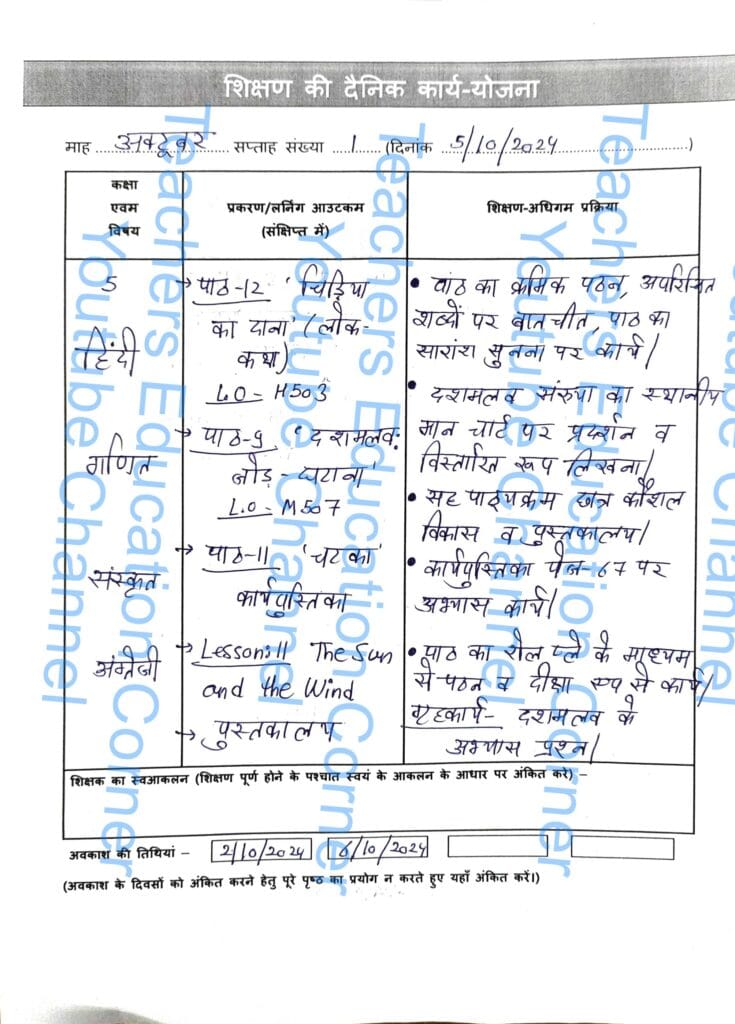 शिक्षण की दैनिक कार्य-योजना
माह अक्टूबर सप्ताह संख्या 1 (दिनांक 5/10/2024)
कक्षा
एवम
विषय
प्रकरण/लर्निंग आउटकम
(संक्षिप्त में)
शिक्षण-अधिगम प्रक्रिया
5
हिंदी
→ पाठ-12 'चिड़िया
का दाना' (लोक-
कथा)
LO - H503
• पाठ का क्रमिक पठन, अपरिचित
शब्दों पर बातचीत, पाठ का
सारांश सुनना पर कार्य।
गणित
→ पाठ-9 'दशमलव:
जोड़-घटाना'
L.O - M507
• दशमलव संख्या का स्थानीय
मान चार्ट पर प्रदर्शन व
विस्तारित रूप लिखना।
• सह पाठ्यक्रम छात्र कौशल
विकास व पुस्तकालय।
संस्कृत
→ पाठ-11 'चटका'
कार्यपुस्तिका
• कार्यपुस्तिका पेज-67 पर
अभ्यास कार्य।
अंग्रेजी
→ Lesson:11 The Sun
and the Wind
→ पुस्तकालय
• पाठ का रोल प्ले के माध्यम
से पठन व दीक्षा एप से कार्य।
गृहकार्य- दशमलव के
अभ्यास प्रश्न।
शिक्षक का स्वआकलन (शिक्षण पूर्ण होने के पश्चात स्वयं के आकलन के आधार पर अंकित करे) –
अवकाश की तिथियां – 2/10/2024 6/10/2024
(अवकाश के दिवसों को अंकित करने हेतु पूरे पृष्ठ का प्रयोग न करते हुए यहाँ अंकित करें।)
Teachers Education Corner
Youtube Channel
Teachers Education Corner
Youtube Channel
Teachers Education Corner
Youtube Channel